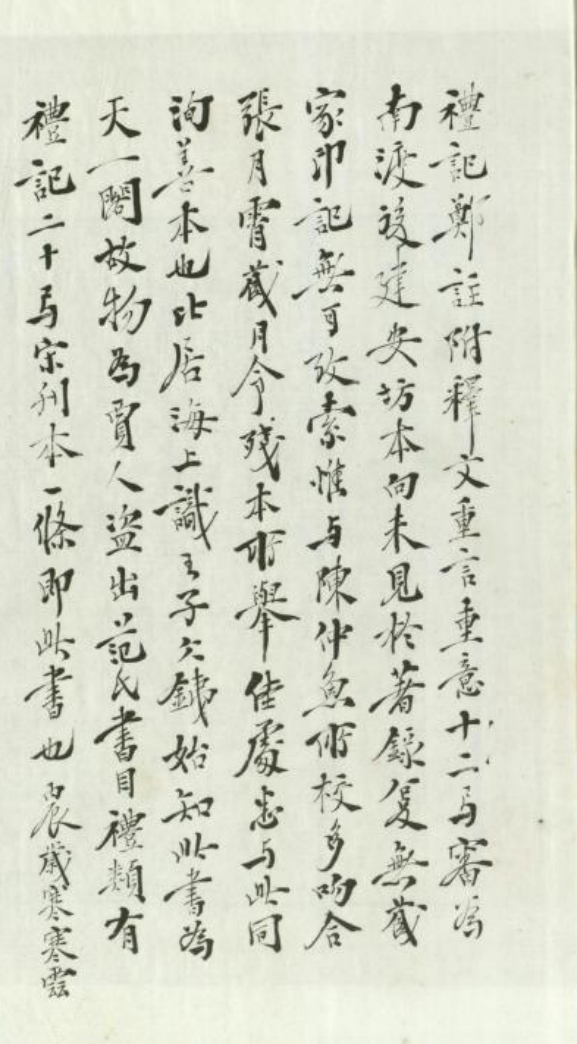 禮記鄭註附釋文重言重意十二与審為
南渡後建安坊本向未見於著錄復無藏
家印記無可攷索惟与陳仲魚所校多吻合
張月霄藏月令殘本所舉佳處悉与此同
洵善本也比居海上識王子欠銕始知此書為
天一閣故物為賈人盜出范氏書目禮類有
禮記二十与宋刋本一條即此書也 辰歲寒寒雲